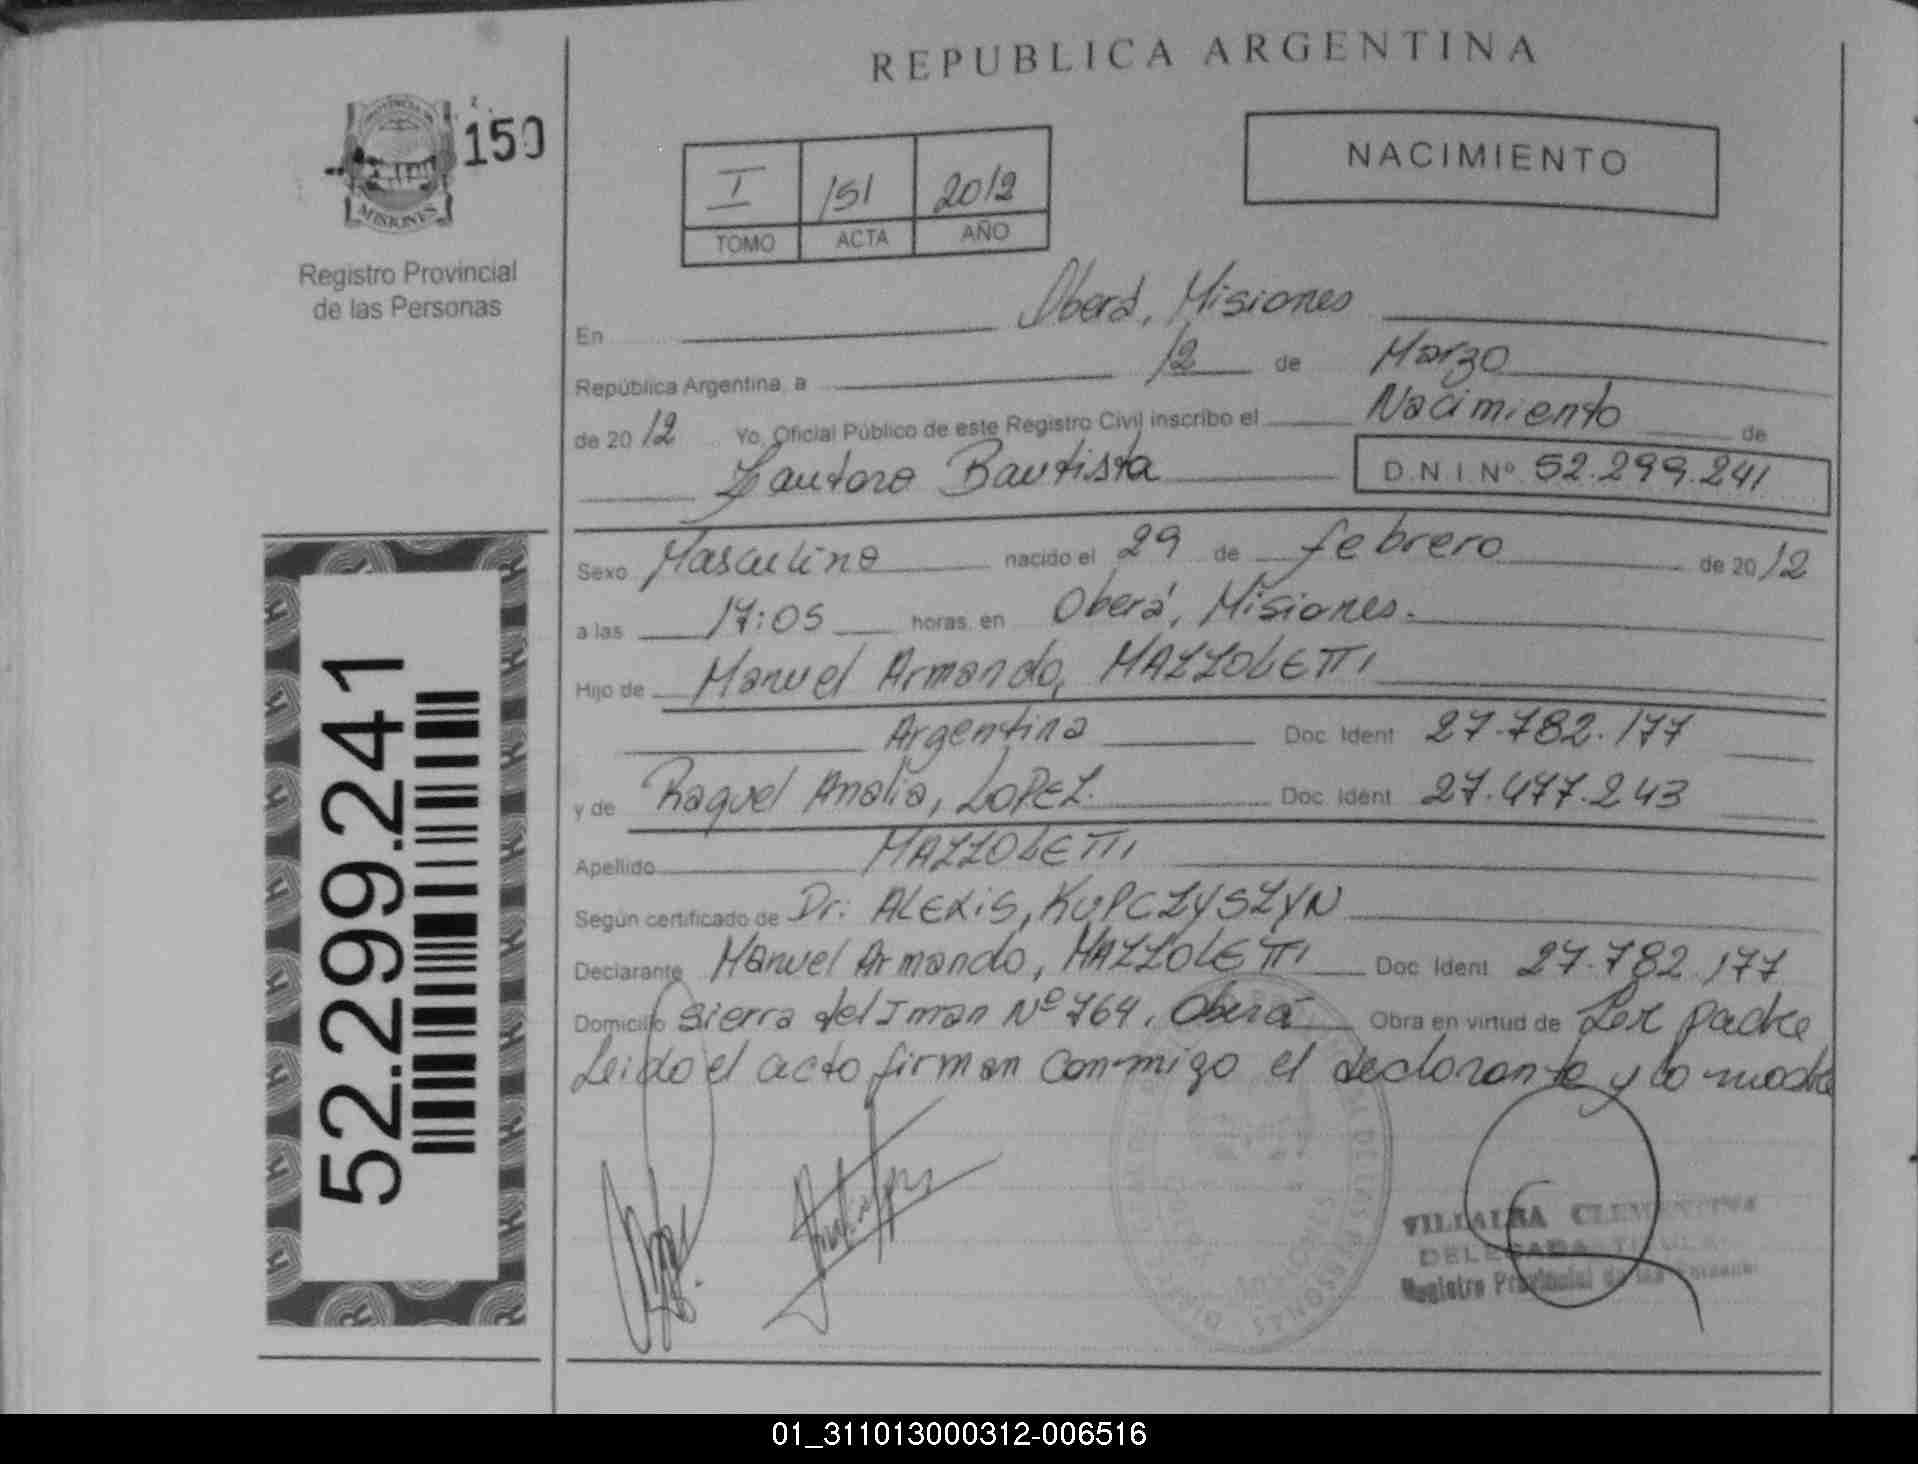 REPUBLICA ARGENTINA
PROVINCIA DE
MISIONES
150
Registro Provincial
de las Personas
NACIMIENTO
I 151 2012
TOMO ACTA AÑO
En Oberá, Misiones
República Argentina, a 12 de Marzo
de 2012 Yo, Oficial Público de este Registro Civil inscribo el Nacimiento de
Lautaro Bautista D.N.I. Nº 52.299.241
Sexo Masculino nacido el 29 de febrero de 2012
a las 17:05 horas, en Oberá, Misiones.
Hijo de Manuel Armando, MAZZOLETTI
Argentina Doc. Ident 27.782.177
y de Raquel Analia, LOPEZ. Doc. Ident 27.477.243
Apellido MAZZOLETTI
Según certificado de Dr: ALEXIS, KUPCZYSZYN
Declarante Manuel Armando, MAZZOLETTI Doc. Ident 27.782.177
Domicilio Sierra del Iman Nº 764, Oberá Obra en virtud de Ser padre
Leido el acto firman conmigo el declarante y la madre
VILLALBA CLEMENTINA
DELEGADA TITULAR
Registro Provincial de las Personas
52.299.241
01_311013000312-006516